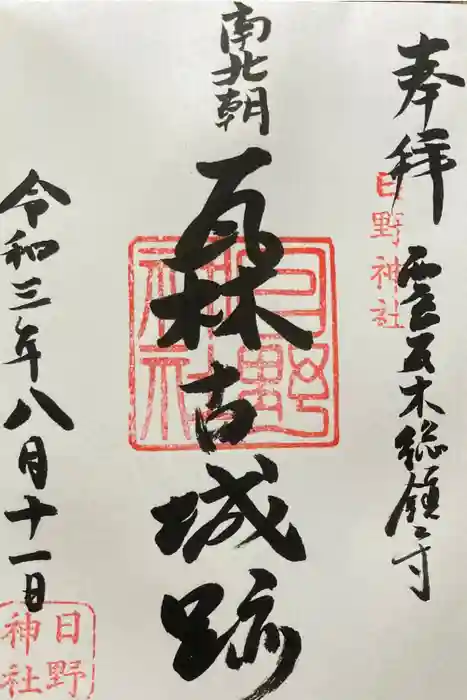 奉拝
日野神社
瓦木総鎮守
南北朝
瓦林古城跡
日野
神社
令和三年八月十一日
日野
神社